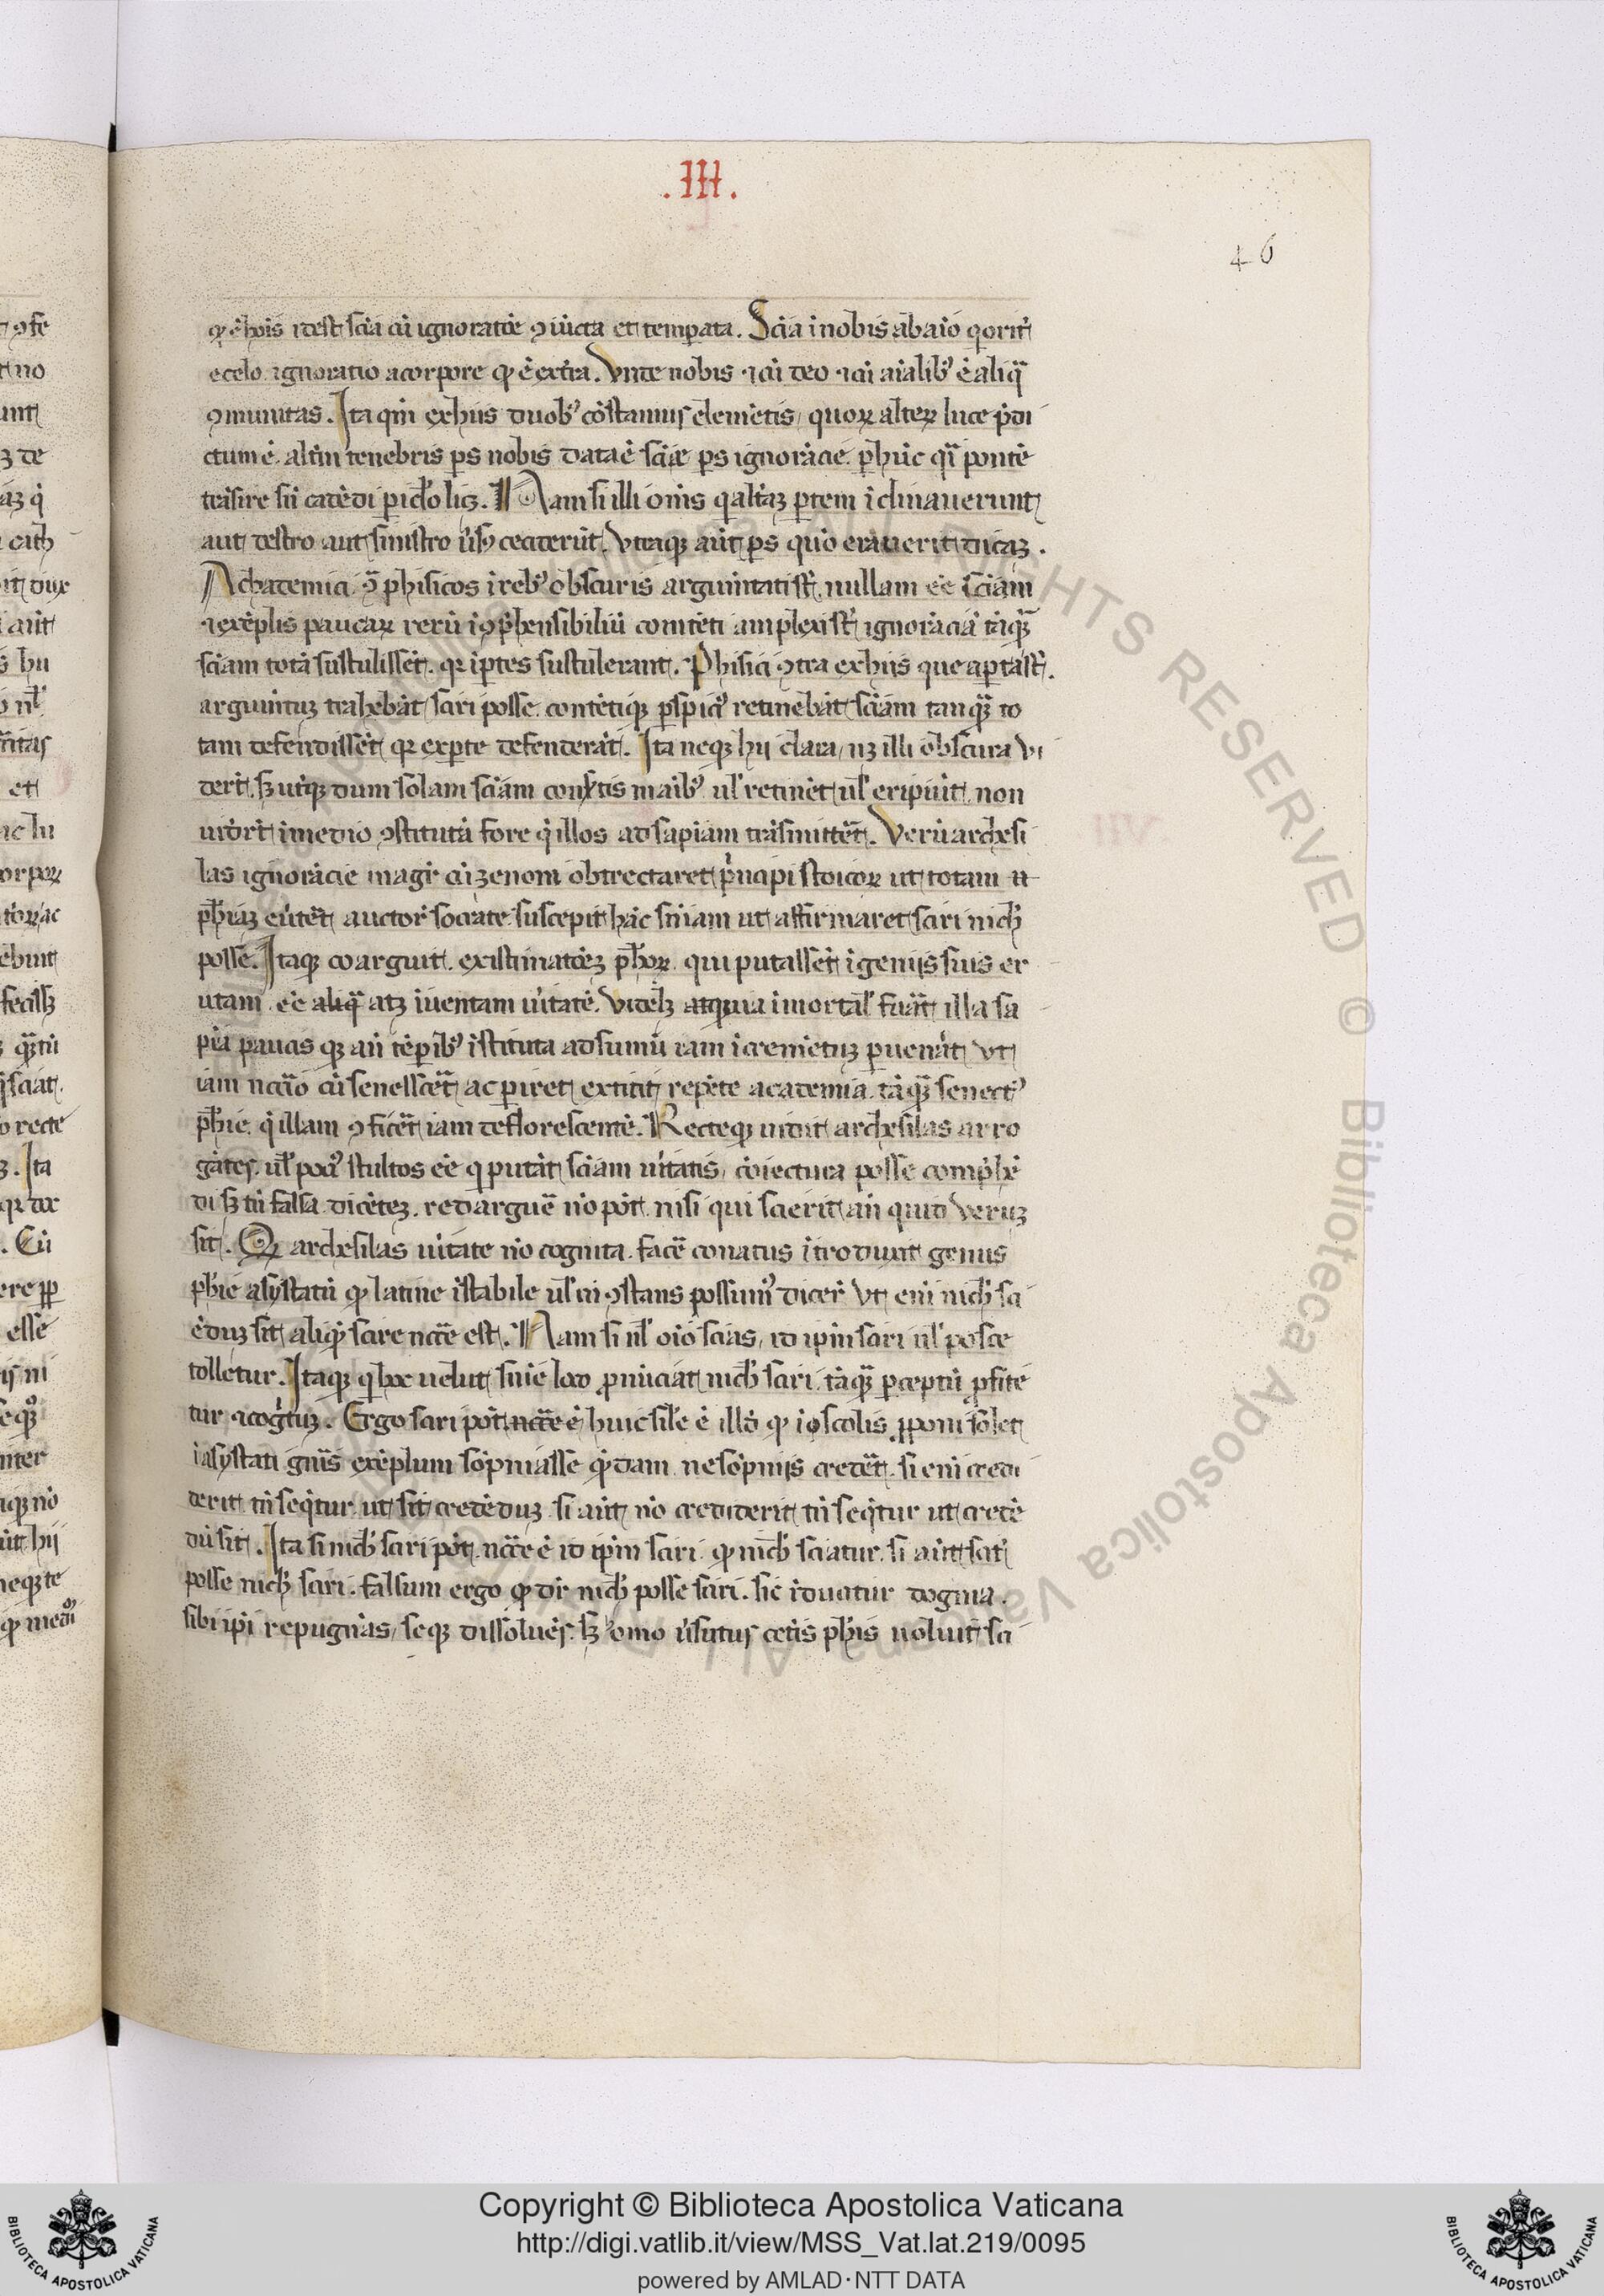 .III.
46
qđ ē hoīs idest scīa cū ignoratōe ꝯiūcta et temꝑata. Scīa i nobis ab aīo q̄ oritʳ
e celo. ignoratio a corpore qđ ē ex tr̄a. Vnde nobis ⁊ cū deo ⁊ cū aīalibꝰ ē aliq̄
ꝯmunitas. Ita qm̄ ex hiis duobꝰ cōstamus elemētis, quoꝝ alteꝝ luce p̄di
ctum ē. altm̄ tenebris ꝑs nobis data ē scīe ꝑs ignorācie. ꝑ hūc q̄i pontē
trāsire sn̄ cadēdi ꝑiclo licꝫ. Nam si illi om̄s q̄ altaꝫ ꝑtem īclinauerunt
aut dextro aut sinistro ūsꝰ ceciderūt. Vtraqꝫ aūt ꝑs quō erauerit dicaꝫ.
Achademici. ꝯ̄ phisicos i rebꝰ obscuris argumītati st̄. nullam eē sciām
⁊ exēplis paucaꝝ rerū īꝯp̄hensibiliū comtēti amplexi st̄ ignorāciā tāqꝫ
sciām totā sustulissēt. qꝛ iꝑtes sustulerant. Phisici ꝯtra ex hiis que aꝑta st̄.
argumītuꝫ trahebāt sciri posse. contētiqꝫ ꝑspicꝰ retinebāt sciām tanqꝫ to
tam defendissēt qꝛ ex ꝑte defenderāt. Ita neqꝫ hii clara, nꝫ illi obscura vi
derūt. sꝫ utiqꝫ dum solam sciām consertis maibꝰ ul̓ retinēt ul̓ eripiūt. non
uidert̄ i medio ꝯstitutā fore q̄ illos ad sapiam trāsmittēt. Verū archesi
las ignorācie magr̄ cū zenoni obtrectaret prīcipi stoicoꝝ ut totam
ph̄iaꝫ euertēt auctor̄ socrate suscepit hāc sn̄iam ut affirmaret sciri nich̄
posse. Itaqꝫ coarguit. existimatōeꝫ ph̄oꝝ. qui putassēt i geniis suis er
utam. eē aliq̄ atꝫ iuentam u̓itatē. Videlꝫ quia imortal̓ fuāt illa sa
pia paucis qꝫ an̄ tēꝑibꝰ īstituta ad sumū iam icremētuꝫ ꝑuenāt. vt
iam ncc̄io cū senesscēt ac ꝑiret, extitit repēte academia. tāqꝫ senectꝰ
ph̄ie. q̄ illam ꝯficēt iam deflorescentē. Recteqꝫ uidit archesilas arro
gātes. ul̓ pocꝰ stultos eē q̓ putāt sciām u̓itatis. cōiectura posse comp̄hē
di sꝫ tn̄ falsa dicētes. redargue͛ no͛ pōt. nisi qui scierit an̄ quid veruꝫ
sit. Qđ archesilas u̓itate no͛ cognita. face͛ conatus ītroduxit genus
ph̄ie asystatū qđ latine īstabile ul̓ inꝯstans possumꝰ dicer̄. Vt eni nich̄ sci
ēduꝫ sit. aliqđ scire ncc̄e est. Nam si nl̓ oīo scias, id ip̄m sciri nl̓ posse
tolletur. Itaqꝫ q̓ hoc uelut sn̄ie loco ꝓnūciāt nich̄ sciri tāqꝫ ꝑceptū ꝓfite
tur ⁊ cogn̄tuꝫ. Ergo sciri pōt huic sil̓e ē illō qđ i scolis ꝓponi solet
i asystati gn̄is exēplum sōpniasse qđam. ne sōpniis credēt. si eni credi
derit, tn̄ seqͥtur ut sit credēduꝫ si aūt no͛ crediderit, tn̄ seqͥtur ut credē
dū sit. Ita si nich̄ sciri pōt. ncc̄e ē id ip̄m sciri. qđ nich̄ sciatur. si aūt scit̄
posse nich̄ sciri. falsum ergo qđ dr̄ nich̄ posse sciri. sic iducitur dogma.
sibi ip̄i repugnās, seqꝫ dissoluēs. sꝫ omo u̓sutus cet̄is ph̄is uoluit sci
Copyright © Biblioteca Apostolica Vaticana
http://digi.vatlib.it/view/MSS_Vat.lat.219/0095
powered by AMLAD·NTT DATA